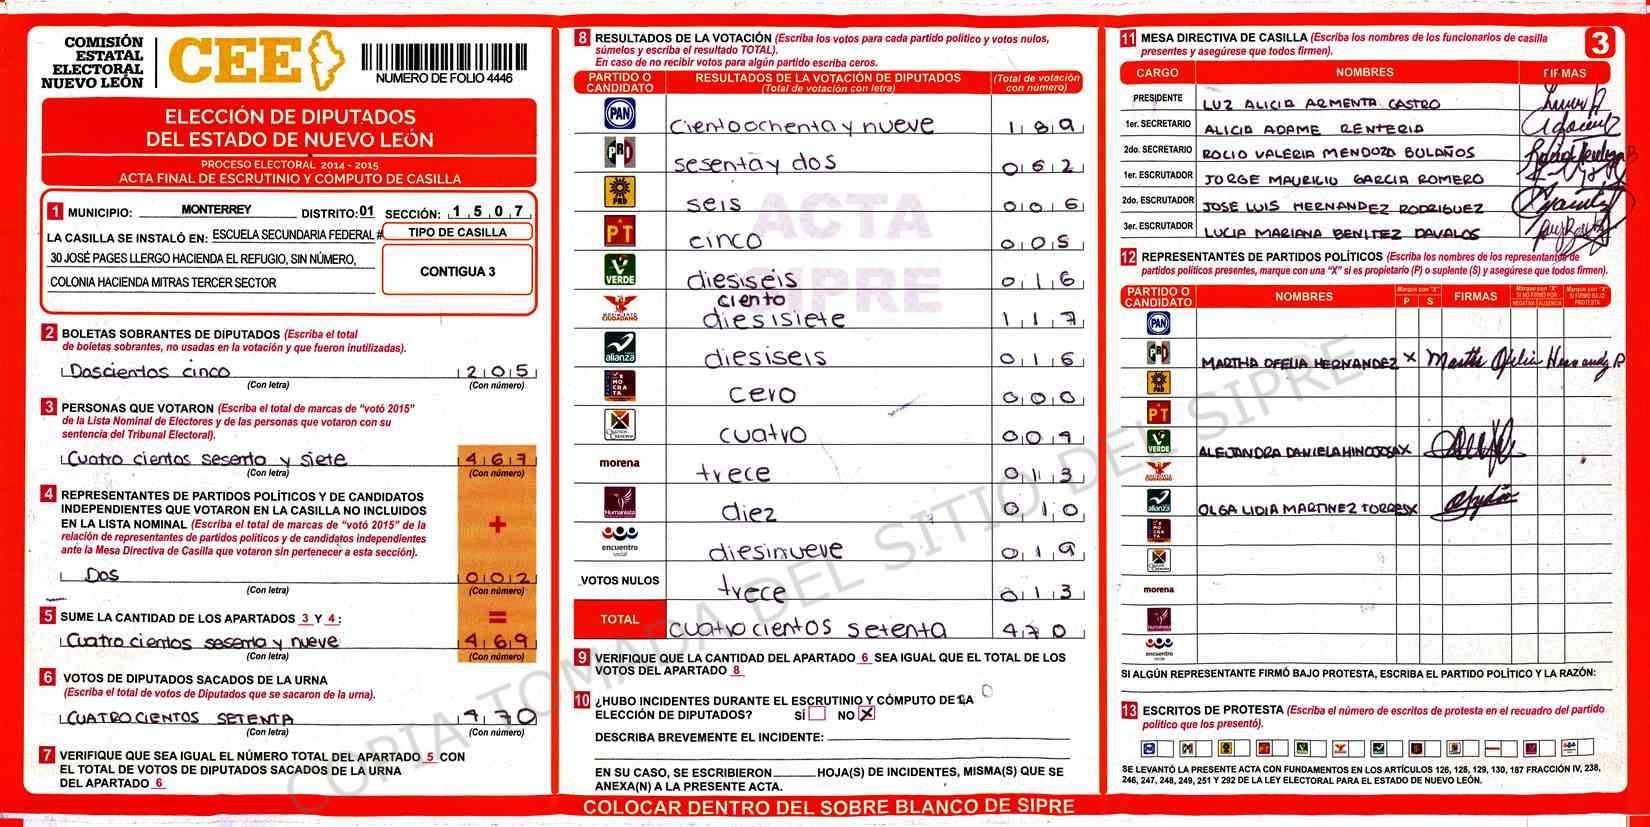 COMISIÓN
ESTATAL
ELECTORAL
NUEVO LEÓN
CEE
NUMERO DE FOLIO 4446
ELECCIÓN DE DIPUTADOS
DEL ESTADO DE NUEVO LEÓN
PROCESO ELECTORAL 2014 - 2015
ACTA FINAL DE ESCRUTINIO Y CÓMPUTO DE CASILLA
1 MUNICIPIO: MONTERREY DISTRITO: 01 SECCIÓN: 1 5 0 7
LA CASILLA SE INSTALÓ EN: ESCUELA SECUNDARIA FEDERAL #
30 JOSÉ PAGES LLERGO HACIENDA EL REFUGIO, SIN NÚMERO,
COLONIA HACIENDA MITRAS TERCER SECTOR
TIPO DE CASILLA
CONTIGUA 3
2 BOLETAS SOBRANTES DE DIPUTADOS (Escriba el total
de boletas sobrantes, no usadas en la votación y que fueron inutilizadas).
Doscientos cinco 2 0 5
(Con letra) (Con número)
3 PERSONAS QUE VOTARON (Escriba el total de marcas de "votó 2015"
de la Lista Nominal de Electores y de las personas que votaron con su
sentencia del Tribunal Electoral).
Cuatro cientos sesenta y siete 4 6 7
(Con letra) (Con número)
4 REPRESENTANTES DE PARTIDOS POLÍTICOS Y DE CANDIDATOS
INDEPENDIENTES QUE VOTARON EN LA CASILLA NO INCLUIDOS
EN LA LISTA NOMINAL (Escriba el total de marcas de "votó 2015" de la
relación de representantes de partidos políticos y de candidatos independientes
ante la Mesa Directiva de Casilla que votaron sin pertenecer a esta sección).
+
Dos 0 0 2
(Con letra) (Con número)
5 SUME LA CANTIDAD DE LOS APARTADOS 3 Y 4: =
Cuatro cientos sesenta y nueve 4 6 9
(Con letra) (Con número)
6 VOTOS DE DIPUTADOS SACADOS DE LA URNA
(Escriba el total de votos de Diputados que se sacaron de la urna).
CUATROCIENTOS SETENTA 4 70
(Con letra) (Con número)
7 VERIFIQUE QUE SEA IGUAL EL NÚMERO TOTAL DEL APARTADO 5 CON
EL TOTAL DE VOTOS DE DIPUTADOS SACADOS DE LA URNA
DEL APARTADO 6
8 RESULTADOS DE LA VOTACIÓN (Escriba los votos para cada partido político y votos nulos,
súmelos y escriba el resultado TOTAL).
En caso de no recibir votos para algún partido escriba ceros.
PARTIDO O CANDIDATO RESULTADOS DE LA VOTACIÓN DE DIPUTADOS (Total de votación con letra) (Total de votación con número)
PAN cientoochenta y nueve 1 8 9
PRD sesenta y dos 0 6 2
PRD seis 0 0 6
PT cinco 0 0 5
VERDE diesiseis 0 1 6
ciento
MOVIMIENTO CIUDADANO diesisiete 1 1 7
alianza diesiseis 0 1 6
cero 0 0 0
cuatro 0 0 9
morena trece 0 1 3
Humanista diez 0 1 0
encuentro social diesinueve 0 1 9
VOTOS NULOS trece 0 1 3
TOTAL cuatrocientos setenta 4 7 0
ACTA
SIPRE
9 VERIFIQUE QUE LA CANTIDAD DEL APARTADO 6 SEA IGUAL QUE EL TOTAL DE LOS
VOTOS DEL APARTADO 8
10 ¿HUBO INCIDENTES DURANTE EL ESCRUTINIO Y CÓMPUTO DE LA
ELECCIÓN DE DIPUTADOS? SÍ NO X
DESCRIBA BREVEMENTE EL INCIDENTE:
EN SU CASO, SE ESCRIBIERON HOJA(S) DE INCIDENTES, MISMA(S) QUE SE
ANEXA(N) A LA PRESENTE ACTA.
COLOCAR DENTRO DEL SOBRE BLANCO DE SIPRE
11 MESA DIRECTIVA DE CASILLA (Escriba los nombres de los funcionarios de casilla
presentes y asegúrese que todos firmen).
3
CARGO NOMBRES FIRMAS
PRESIDENTE LUZ ALICIA ARMENTA CASTRO
1er. SECRETARIO ALICIA ADAME RENTERIA
2do. SECRETARIO ROCIO VALERIA MENDOZA BOLAÑOS
1er. ESCRUTADOR JORGE MAURICIO GARCIA ROMERO
2do. ESCRUTADOR JOSE LUIS HERNANDEZ RODRIGUEZ
3er. ESCRUTADOR LUCIA MARIANA BENITEZ DAVALOS
12 REPRESENTANTES DE PARTIDOS POLÍTICOS (Escriba los nombres de los representantes de
partidos políticos presentes, marque con una "X" si es propietario (P) o suplente (S) y asegúrese que todos firmen).
PARTIDO O CANDIDATO NOMBRES Marque con "X" P S FIRMAS Marque con "X" SI NO FIRMÓ POR NEGATIVA AUSENCIA Marque con "X" SI FIRMÓ BAJO PROTESTA
PAN
PRD MARTHA OFELIA HERNANDEZ X Martha Ofelia Hernandz R
PRD
PT
VERDE ALEJANDRA DANIELA HINOJOSA X
alianza OLGA LIDIA MARTINEZ TORRES X
morena
Humanista
encuentro social
SI ALGÚN REPRESENTANTE FIRMÓ BAJO PROTESTA, ESCRIBA EL PARTIDO POLÍTICO Y LA RAZÓN:
13 ESCRITOS DE PROTESTA (Escriba el número de escritos de protesta en el recuadro del partido
político que los presentó).
SE LEVANTÓ LA PRESENTE ACTA CON FUNDAMENTOS EN LOS ARTÍCULOS 126, 128, 129, 130, 187 FRACCIÓN IV, 238,
246, 247, 248, 249, 251 Y 292 DE LA LEY ELECTORAL PARA EL ESTADO DE NUEVO LEÓN.
COPIA TOMADA DEL SITIO DEL SIPRE